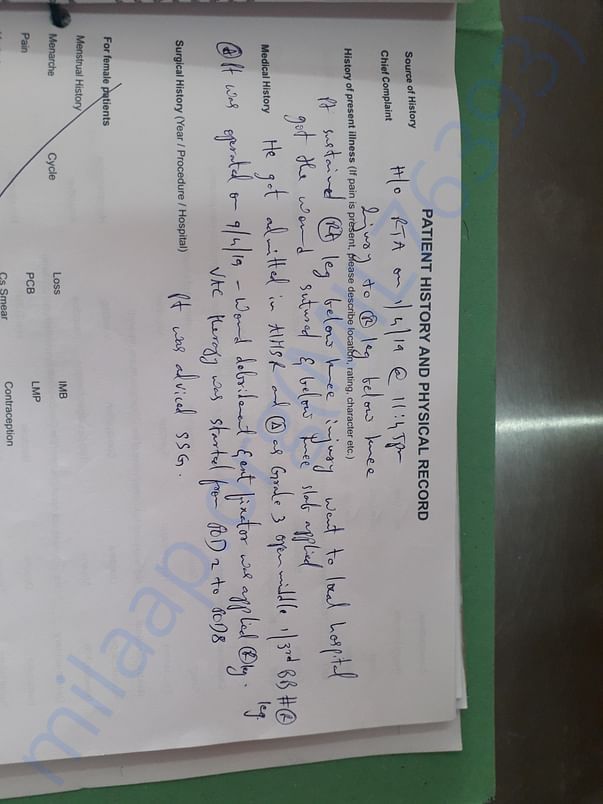 PATIENT HISTORY AND PHYSICAL RECORD
Source of History
Chief Complaint
H/o RTA on 1/4/19 @ 11:45p
Injury to (R) leg below knee
History of present illness (If pain is present, please describe location, rating, character etc.)
Pt sustained (Rt) leg below knee injury went to local hospital
got the wound sutured & below knee slab applied
Medical History
He got admitted in and (Δ) as Grade 3 open middle 1/3rd BB # (R) leg.
Pt was operated on 9/4/19 - Wound debridement & ext fixator was applied (R) leg.
VAC therapy was started from POD 2 to POD8
Surgical History (Year / Procedure / Hospital)
Pt was adviced SSG.
For female patients
Menstrual History
Menarche Cycle Loss IMB
Pain PCB LMP
Cs Smear Contraception
milaap.org